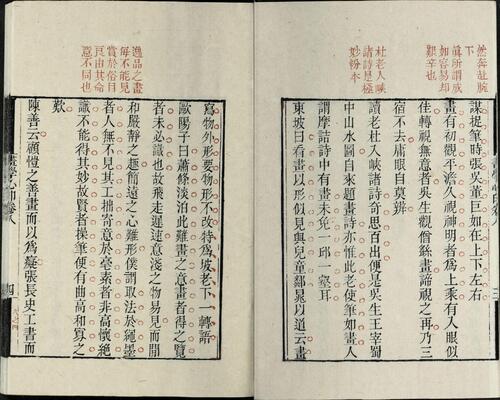 然奔趾腕
下
真所謂成
如容易却
艱辛也
杜老入峽
諸詩是極
妙粉本
謀捉筆時張吳輩巨如在上下左右
畫有初觀平澹久視神明者為上乘有入眼似
佳轉視無意者吳生觀僧繇畫諦視之再乃三
宿不去庸眼自莫辨
讀老杜入峽諸詩奇思百出便是吳生王宰蜀
中山水圖自來題畫詩亦惟此老使筆如畫人
謂摩詰詩中有畫未免一邱一壑耳
東坡曰看畫以形似見與兒童鄰晁以道云畫
逸品之畫
每不能見
賞於俗目
良由其命
意不同也
寫物外形要物形不改特為坡老下一轉語
歐陽子曰蕭條淡泊此難畫之意畫者得之覽
者未必識也故飛走遲速意淺之物易見而閒
和嚴靜之趣簡遠之心難形僕謂取法於繩墨
者人無不見其工拙寄意於毫素者非高懷絕
識不能得其妙故賢者操筆便有曲高和寡之
歎
陳善云顧愷之善畫而以為癡張長史工書而
畫學心印卷八
四